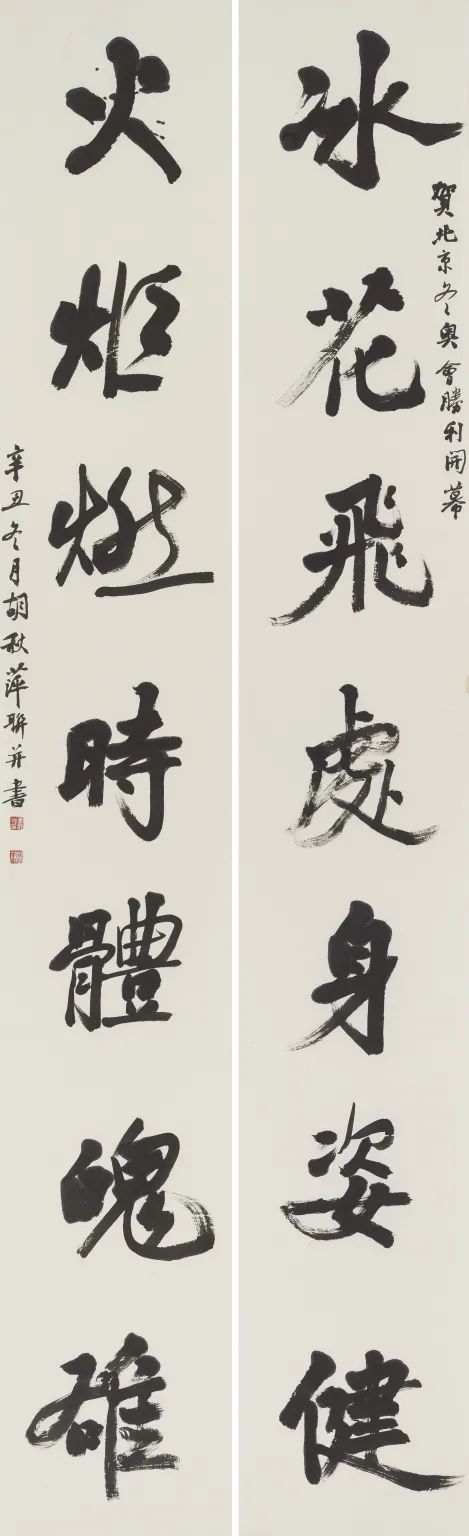 賀北京冬奧會勝利開幕
冰花飛處身姿健
火炬燃時體魄雄
辛丑冬月胡秋萍聯并書